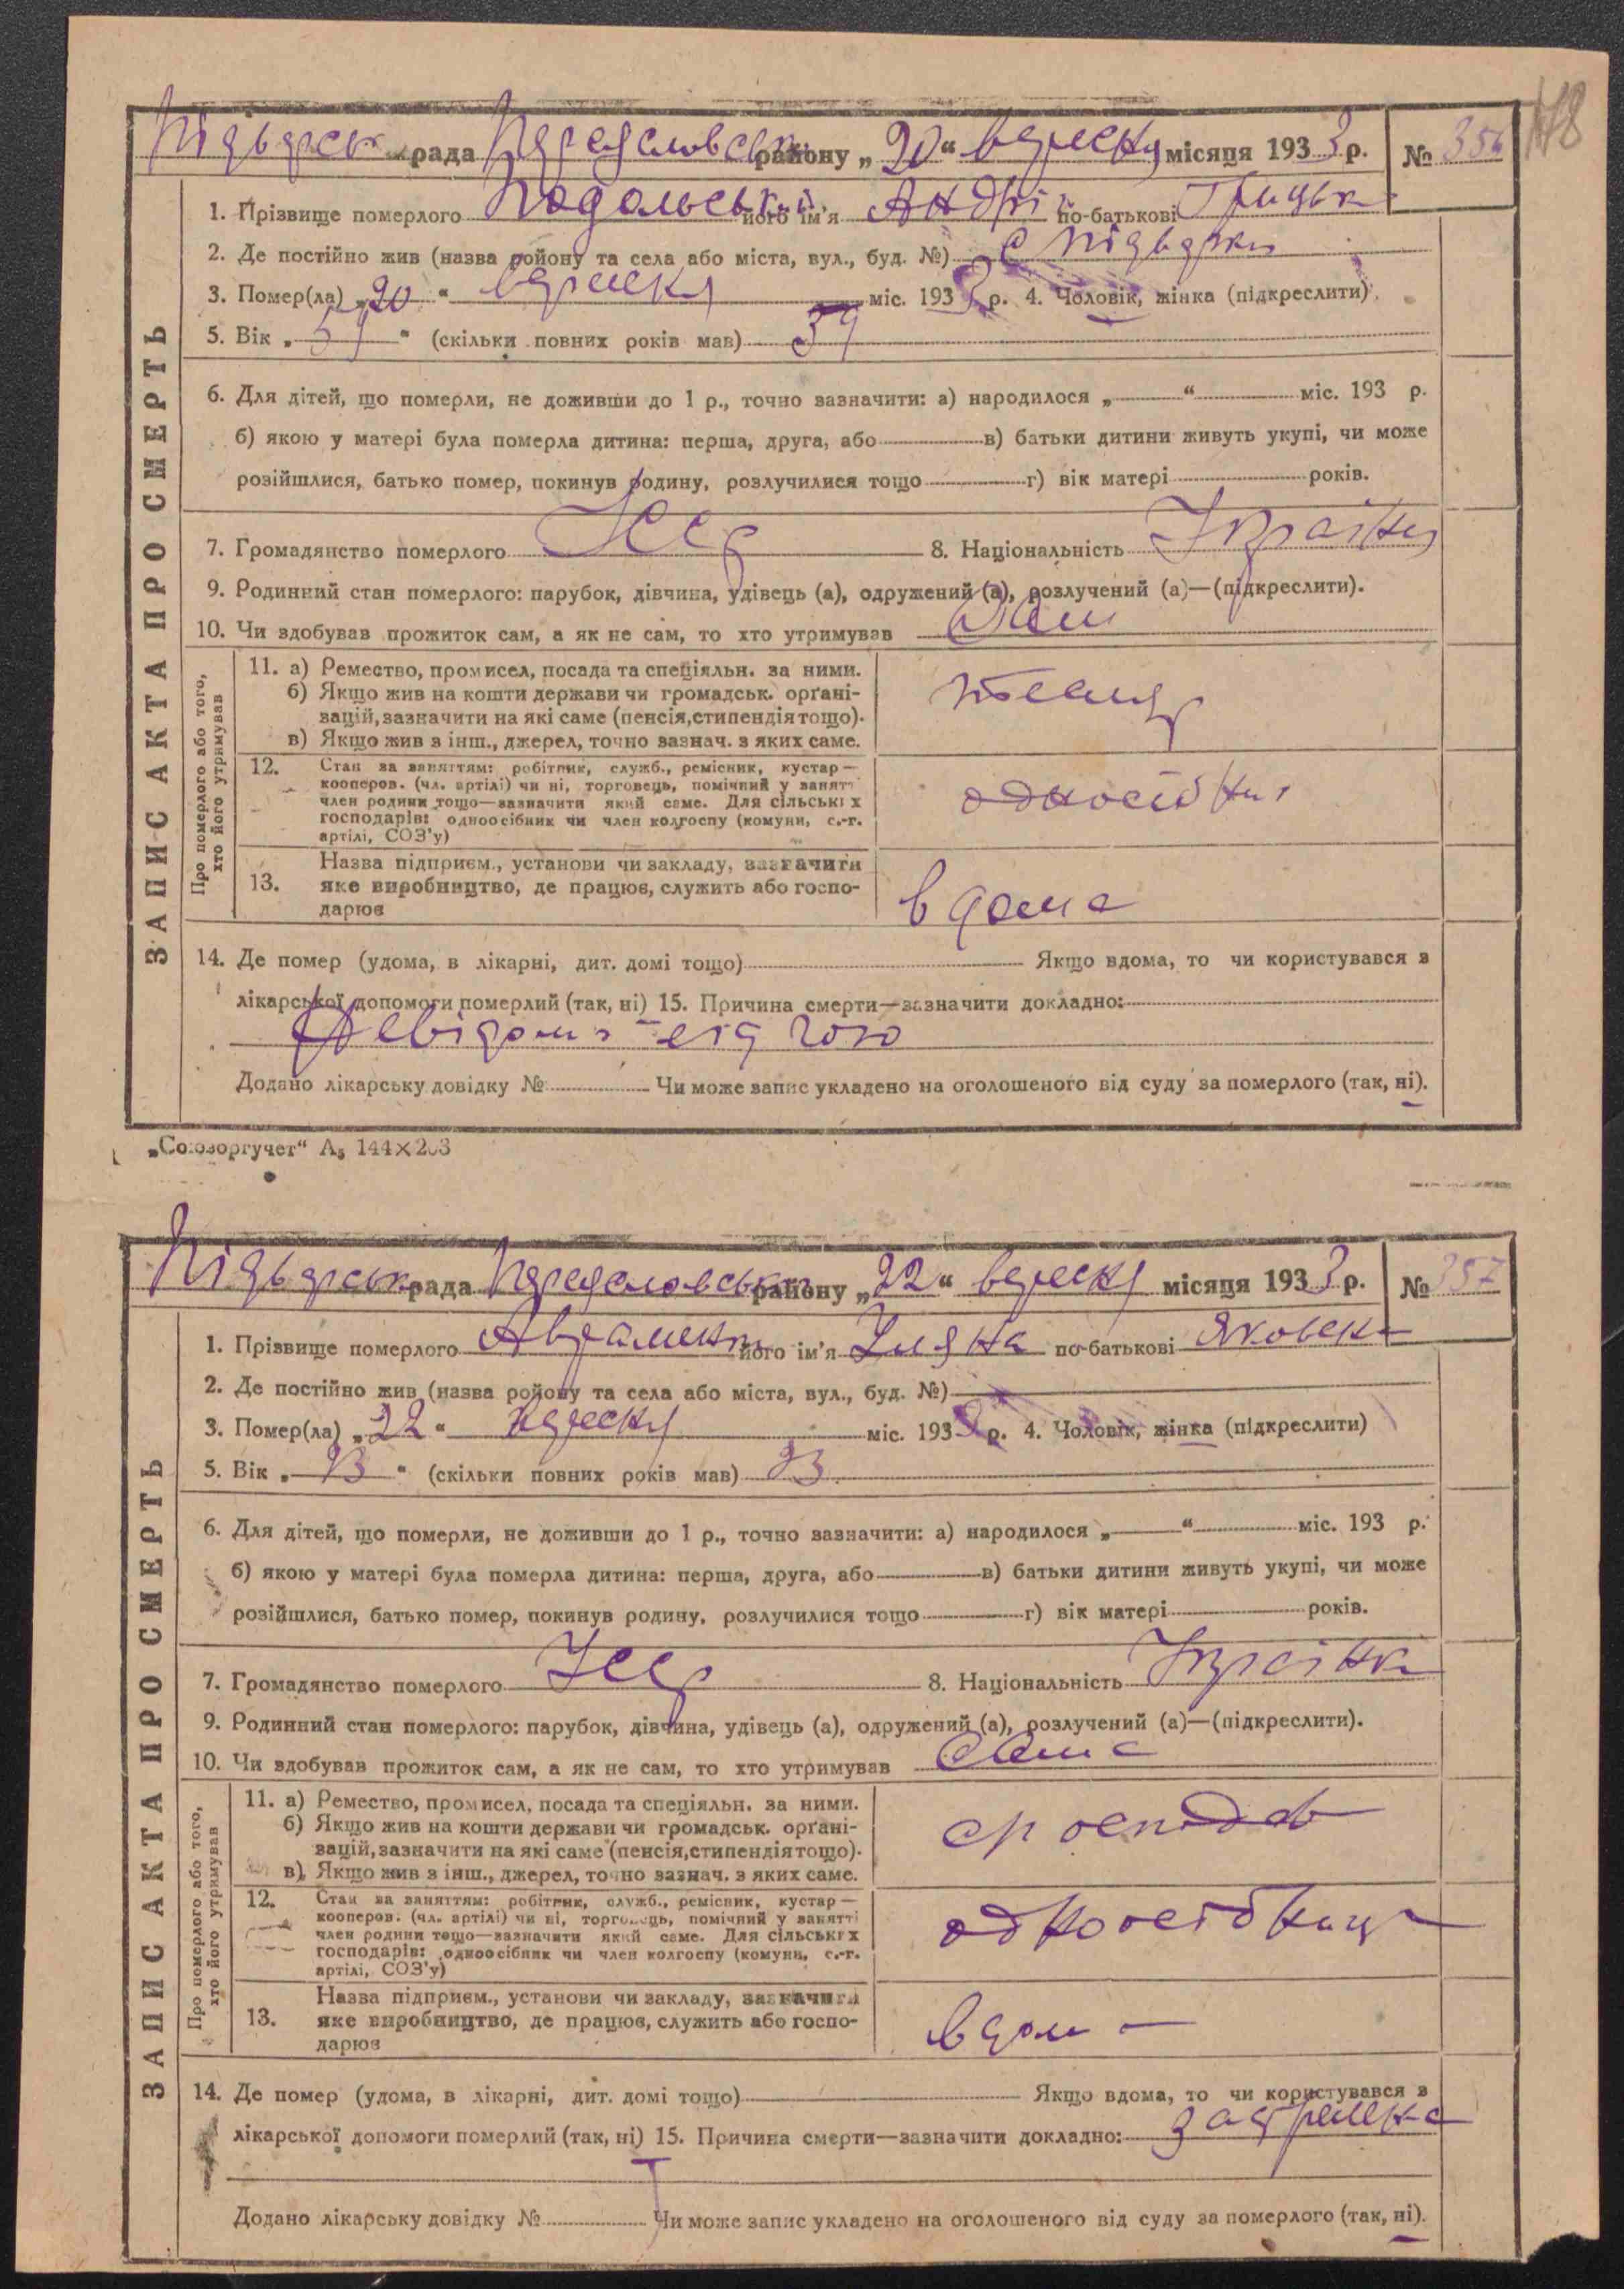 178
Підварськ рада Переяславськ району „20“ вересня місяця 1933 р. № 356
1. Прізвище померлого Подольський його ім'я Андрій по-батькові Грицьк
2. Де постійно жив (назва ройону та села або міста, вул., буд. №) с Підварки
3. Помер(ла) „20“ вересня міс. 1933 р. 4. Чоловік, жінка (підкреслити)
5. Вік „39“ (скільки повних років мав) 39
6. Для дітей, що померли, не доживши до 1 р., точно зазначити: а) народилося „ “ міс. 193 р.
б) якою у матері була померла дитина: перша, друга, або в) батьки дитини живуть укупі, чи може
розійшлися, батько помер, покинув родину, розлучилися тощо г) вік матері років.
7. Громадянство померлого УССР 8. Національність Україн
9. Родинний стан померлого: парубок, дівчина, удівець (а), одружений (а), розлучений (а)—(підкреслити).
10. Чи здобував прожиток сам, а як не сам, то хто утримував Сам
11. а) Ремество, промисел, посада та спеціяльн. за ними.
б) Якщо жив на кошти держави чи громадськ. орґані-
зацій, зазначити на які саме (пенсія, стипендія тощо).
в) Якщо жив з інш., джерел, точно зазнач. з яких саме.
12. Стан за заняттям: робітник, служб., ремісник, кустар—
кооперов. (чл. артілі) чи ні, торговець, помічний у занятті
член родини тощо—зазначити який саме. Для сільських
господарів: одноосібник чи член колгоспу (комуни, с.-г.
артілі, СОЗ'у)
одноосібник
13. Назва підприєм., установи чи закладу, зазначити
яке виробництво, де працює, служить або госпо-
дарює
вдома
14. Де помер (удома, в лікарні, дит. домі тощо) Якщо вдома, то чи користувався з
лікарської допомоги померлий (так, ні) 15. Причина смерти—зазначити докладно:
Невідомо від чого
Додано лікарську довідку № Чи може запис укладено на оголошеного від суду за померлого (так, ні).
ЗАПИС АКТА ПРО СМЕРТЬ
Про померлого або того, хто його утримував
„Союзоргучет“ А₅ 144×203
Підварськ рада Переяславськ району „22“ вересня місяця 1933 р. № 357
1. Прізвище померлого Авраменко його ім'я Уляна по-батькові Яковен
2. Де постійно жив (назва ройону та села або міста, вул., буд. №)
3. Помер(ла) „22“ вересня міс. 1933 р. 4. Чоловік, жінка (підкреслити)
5. Вік „ “ (скільки повних років мав)
6. Для дітей, що померли, не доживши до 1 р., точно зазначити: а) народилося „ “ міс. 193 р.
б) якою у матері була померла дитина: перша, друга, або в) батьки дитини живуть укупі, чи може
розійшлися, батько помер, покинув родину, розлучилися тощо г) вік матері років.
7. Громадянство померлого УССР 8. Національність Українка
9. Родинний стан померлого: парубок, дівчина, удівець (а), одружений (а), розлучений (а)—(підкреслити).
10. Чи здобував прожиток сам, а як не сам, то хто утримував Сама
11. а) Ремество, промисел, посада та спеціяльн. за ними.
б) Якщо жив на кошти держави чи громадськ. орґані-
зацій, зазначити на які саме (пенсія, стипендія тощо).
в) Якщо жив з інш., джерел, точно зазнач. з яких саме.
12. Стан за заняттям: робітник, служб., ремісник, кустар—
кооперов. (чл. артілі) чи ні, торговець, помічний у занятті
член родини тощо—зазначити який саме. Для сільських
господарів: одноосібник чи член колгоспу (комуни, с.-г.
артілі, СОЗ'у)
одноосібниця
13. Назва підприєм., установи чи закладу, зазначити
яке виробництво, де працює, служить або госпо-
дарює
вдом
14. Де помер (удома, в лікарні, дит. домі тощо) Якщо вдома, то чи користувався з
лікарської допомоги померлий (так, ні) 15. Причина смерти—зазначити докладно:
Додано лікарську довідку № Чи може запис укладено на оголошеного від суду за померлого (так, ні).
ЗАПИС АКТА ПРО СМЕРТЬ
Про померлого або того, хто його утримував